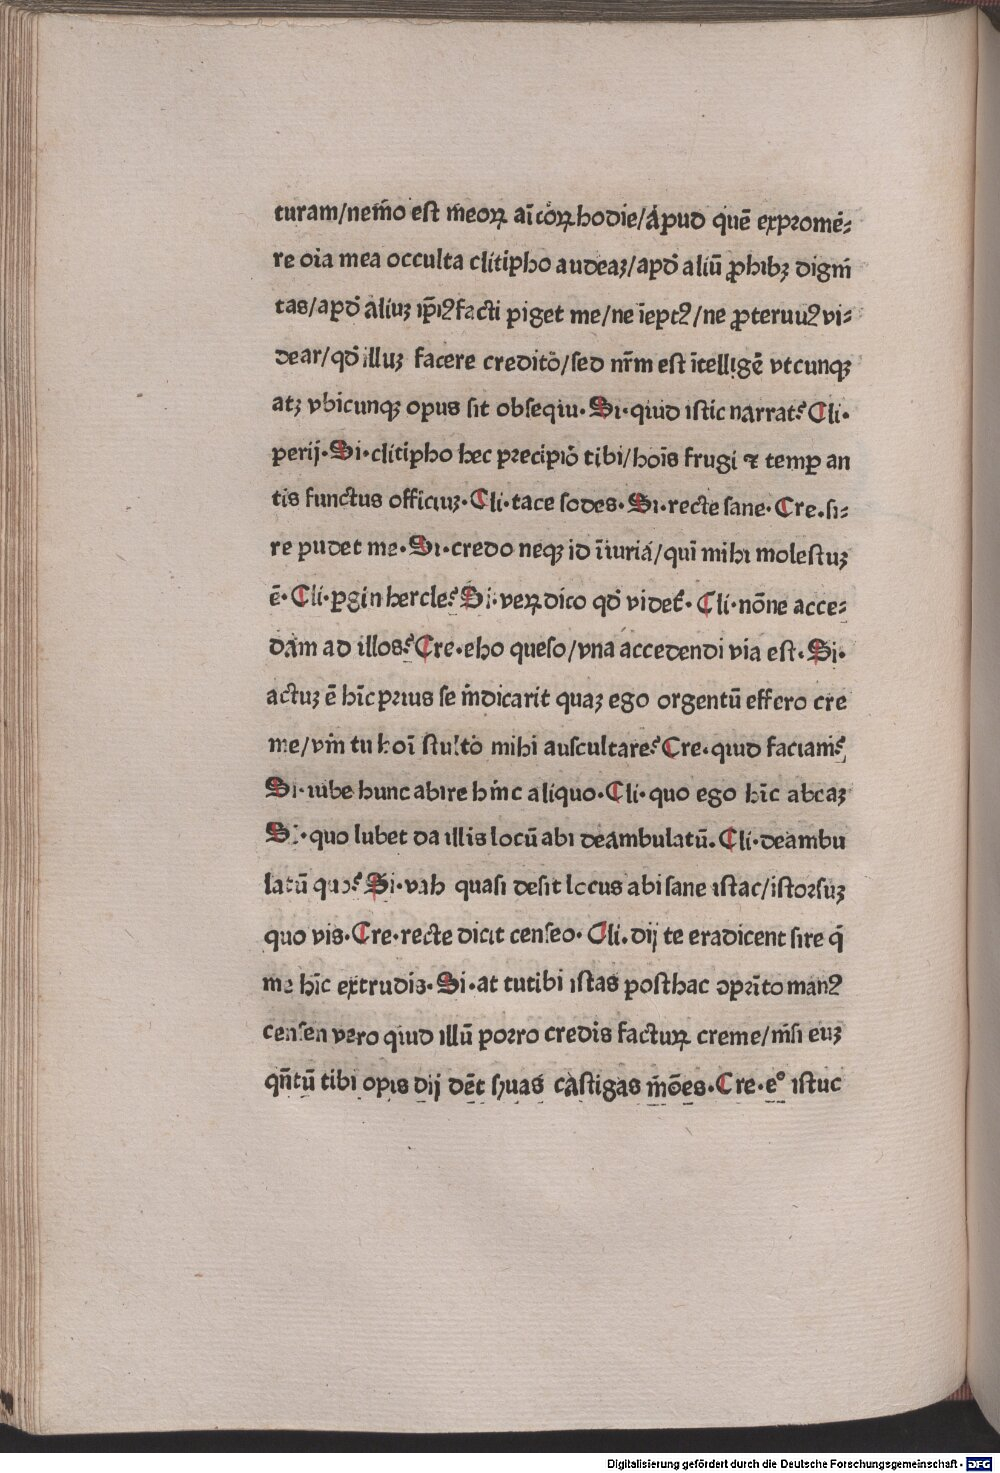 turam/nem̄o est m̄eoꝝ aīcōꝝ hodie/Apud quē expromē⸗
re oīa mea occulta clitipho audeaꝫ/apđ aliū ꝓhibꝫ digni
tas/apđ aliuꝫ ip̄iꝰ facti piget me/ne īeptꝰ/ne ꝓteruuꝰ vi⸗
dear/qđ illuꝫ facere credito/sed nr̄m est ītelligē vtcunqꝫ
atꝫ vbicunqꝫ opus sit obseqiu· Si· qiud istic narrat? Cli·
perij· Si· clitipho hec precipiō tibi/hoīs frugi ⁊ temꝑ an
tis functus officiuꝫ· Cli· tace sodes· Si· recte sane· Cre. si⸗
re pudet me· Si· credo neqꝫ id īiuriā/quī mihi molestuꝫ
ē· Cli· ꝑgin hercle? Si· veꝝ dico qđ videt· Cli· nōne acce⸗
dam ad illos? Cre· eho queso/vna accedendi via est· Si·
actuꝫ ē hīc prius se īndicarit quaꝫ ego orgentū effero cre
me/vin tu hoī stulto mihi auscultare? Cre· qiud faciam?
Si· iube hunc abire hinc aliquo· Cli· quo ego hīc abeaꝫ
Si· quo lubet da illis locū abi deambulatū. Cli· deambu
latū quo? Si· vah quasi desit locus abi sane istac/istorsuꝫ
quo vis· Cre· recte dicit censeo· Cli. dij te eradicent sire q̄
me hīc extrudis· Si· at tutibi istas posthac ↄprīto manꝰ
censen vero qiud illū porro credis factuꝝ creme/nīsi euꝫ
qn̄tū tibi opis dij dēt suas castigas mōes· Cre· e° istuc
Digitalisierung gefördert durch die Deutsche Forschungsgemeinschaft - DFG